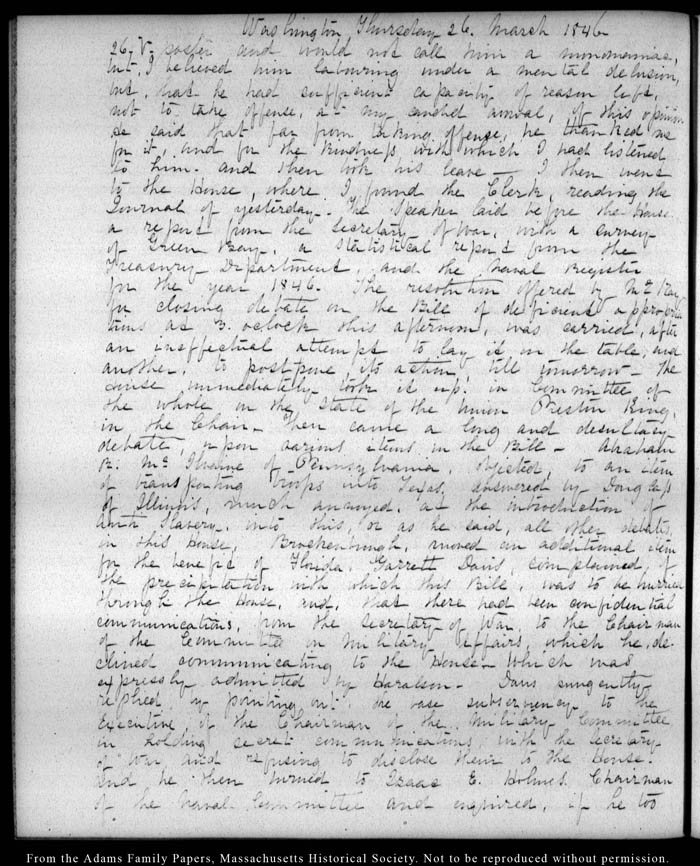 Washington, Thursday 26. March 1846
26. V. and would not call him a monomaniac,
but, I believed him labouring under a mental delusion,
but, that he had sufficient capacity of reason left,
not to take offense, at my candid avowal, of this opinion
he said that far from taking offense, he thanked me
for it, and for the kindness with which I had listened
to him. and then took his leave — I then went
to the House, where I found the Clerk, reading the
Journal of yesterday. The Speaker laid before the House
a report from the Secretary of War, with a survey
of Green Bay, a Statistical report from the
Treasury Department, and the Naval Register
for the year 1846. The resolution offered by Mr
for closing debate on the Bill of deficient appropria
tions at 3. oclock this afternoon, was carried, after
an ineffectual attempt to lay it on the table, and
another, to postpone its action, till tomorrow — The
House immediately took it up: in Committee of
the whole on the State of the Union Preston King,
in the Chair — Then came a long and desultory
debate, upon various items in the Bill — Abraham
R. McIlvaine of Pennsylvania, objected, to an item
of transporting troops into Texas, answered by Douglass
of Illinois, much annoyed, at the introduction of
anti Slavery, into this, or as he said, all other debates
in this House, Brockenbrough, moved an additional item
for the benefit of Florida. Garrett Davis, complained, of
the precipitation with which this Bill, was to be hurried
through the House, and, that there had been confidential
communications, from the Secretary of War, to the Chairman
of the Committee on Military Affairs, which he, de-
clined communicating to the House — which was
expressly admitted by Haralson — Davis pungently
replied by pointing out the base subserviency to the
Executive of the Chairman of the Military Committee
in holding secret communications, with the Secretary
of War, and refusing to disclose them to the House.
and he then turned to Isaac E. Holmes, Chairman
of the Naval Committee and enquired, if he too
From the Adams Family Papers, Massachusetts Historical Society. Not to be reproduced without permission.